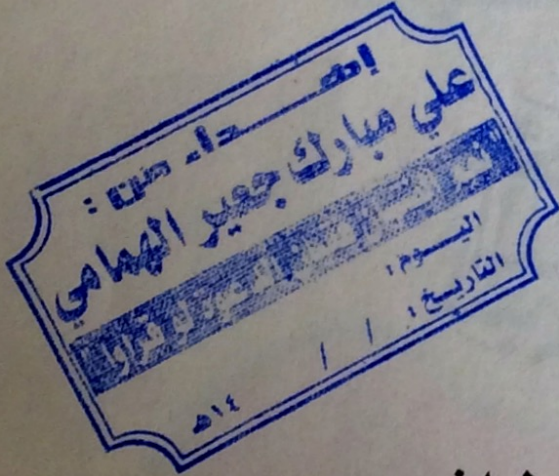 إهـــداء من :
علي مبارك جعير الهمامي
اليـــوم :
التاريـــخ : / / ١٤هـ